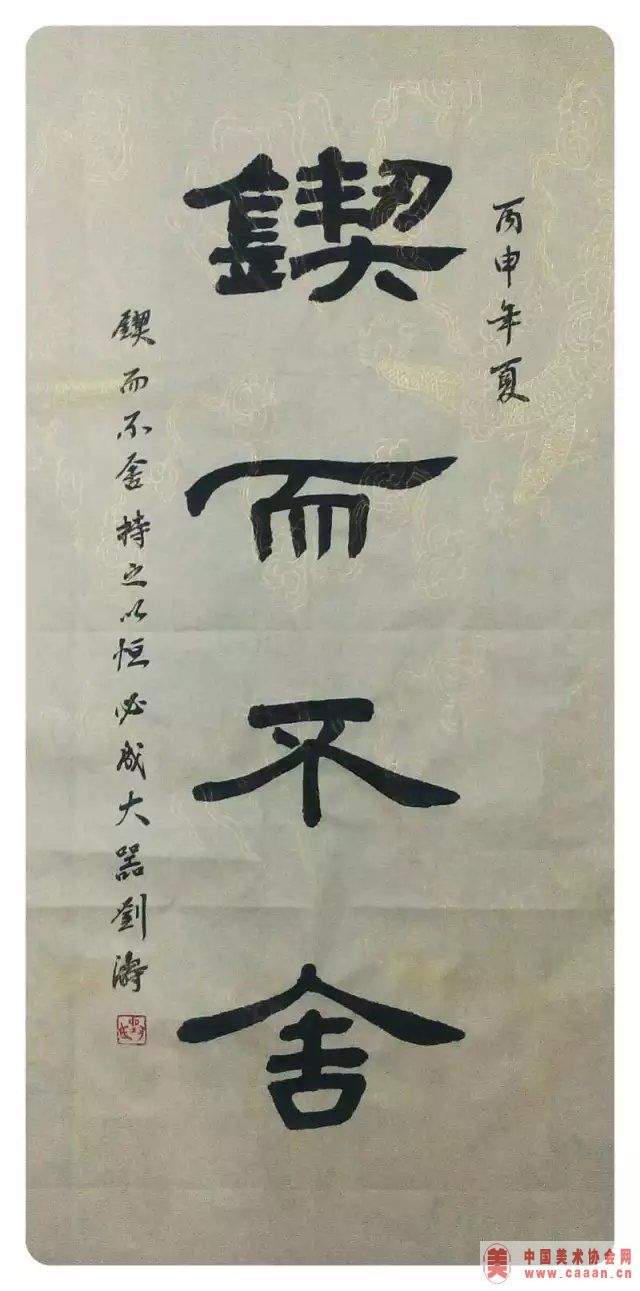 丙申年夏
鍥而不舍
鍥而不舍持之以恒必成大器劉濤
美 中国美术协会网
www.caaan.cn